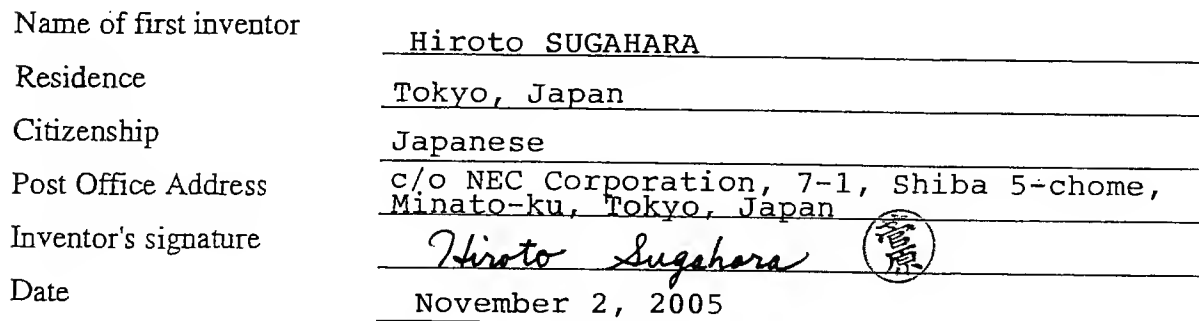 Name of first inventor Hiroto SUGAHARA
Residence Tokyo, Japan
Citizenship Japanese
Post Office Address c/o NEC Corporation, 7-1, Shiba 5-chome,
Minato-ku, Tokyo, Japan
Inventor's signature Hiroto Sugahara 菅原
Date November 2, 2005